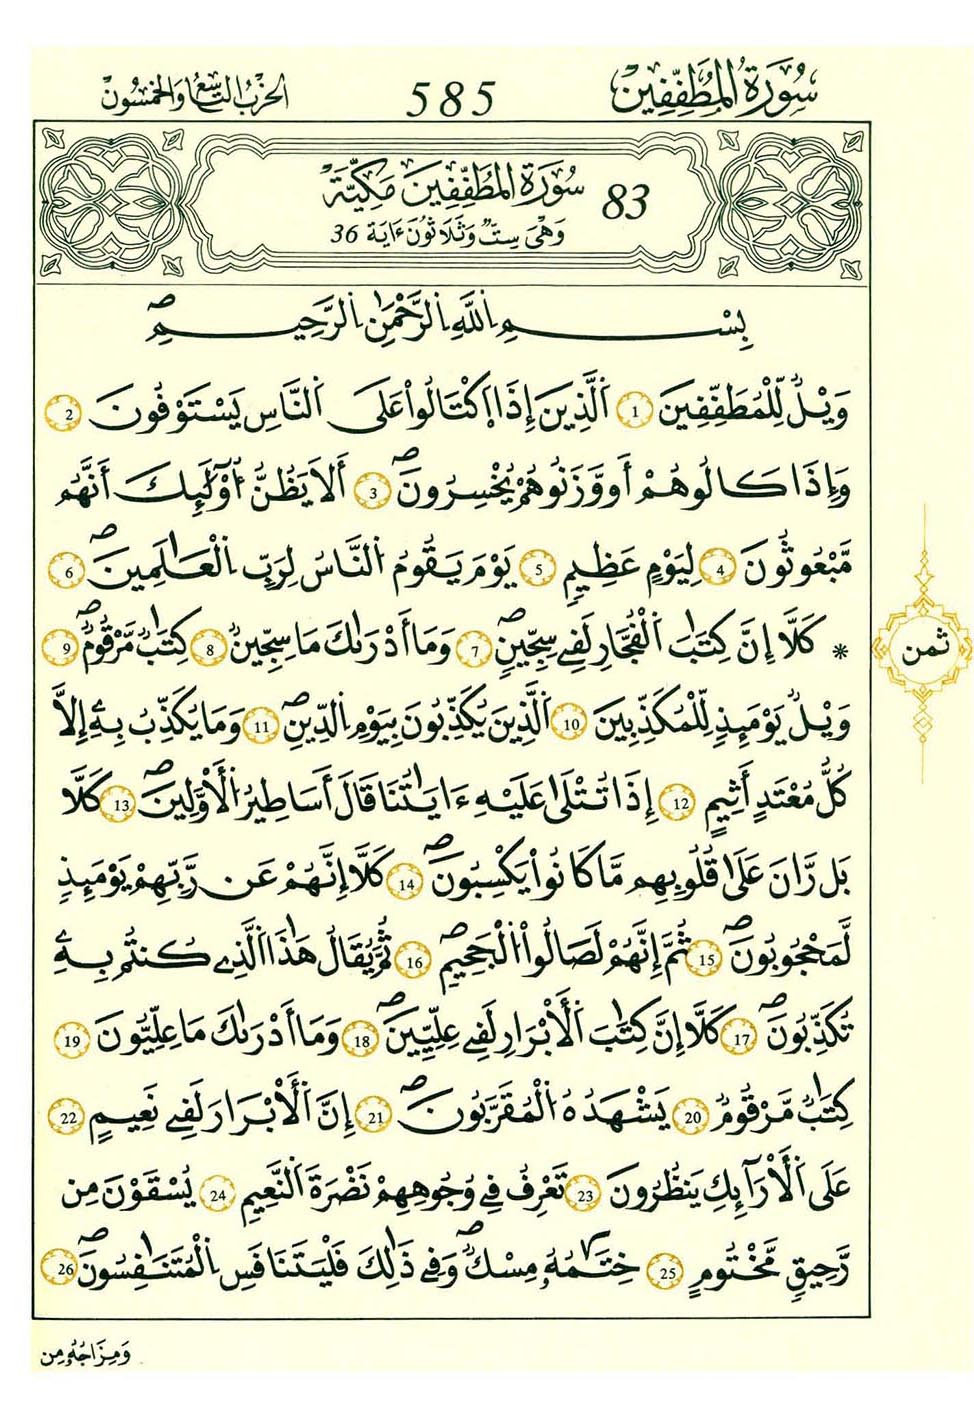 سُورَةُ الْمُطَفِّفِينَ 585 الحزب التاسع والخمسون
83 سُورَةُ الْمُطَفِّفِينَ مَكِّيَّة
وَهِيَ سِتٌّ وَثَلَاثُونَ ءَايَة 36
بِسْمِ اِللَّهِ اِلرَّحْمَٰنِ اِلرَّحِيمِ ۖ
وَيْلٌ لِّلْمُطَفِّفِينَ 1 اَلَّذِينَ إِذَا اَكْتَالُواْ عَلَى اَلنَّاسِ يَسْتَوْفُونَ 2
وَإِذَا كَالُوهُمْ أَو وَّزَنُوهُمْ يُخْسِرُونَ ۖ 3 أَلَا يَظُنُّ أُوْلَٰٓئِكَ أَنَّهُم
مَّبْعُوثُونَ 4 لِيَوْمٍ عَظِيمٍ 5 يَوْمَ يَقُومُ اُلنَّاسُ لِرَبِّ اِلْعَٰلَمِينَ ۖ 6
* كَلَّا إِنَّ كِتَٰبَ اَلْفُجَّارِ لَفِے سِجِّينٍ ۖ 7 وَمَا أَدْرَىٰكَ مَا سِجِّينٌ 8 كِتَٰبٌ مَّرْقُومٌ ۖ 9
وَيْلٌ يَوْمَئِذٍ لِّلْمُكَذِّبِينَ 10 اَلَّذِينَ يُكَذِّبُونَ بِيَوْمِ اِلدِّينِ ۖ 11 وَمَا يُكَذِّبُ بِهِۦٓ إِلَّا
كُلُّ مُعْتَدٍ أَثِيمٍ 12 إِذَا تُتْلَىٰ عَلَيْهِ ءَايَٰتُنَا قَالَ أَسَٰطِيرُ اُلْأَوَّلِينَ ۖ 13 كَلَّا
بَل رَّانَ عَلَىٰ قُلُوبِهِم مَّا كَانُواْ يَكْسِبُونَ ۖ 14 كَلَّا إِنَّهُمْ عَن رَّبِّهِمْ يَوْمَئِذٍ
لَّمَحْجُوبُونَ ۖ 15 ثُمَّ إِنَّهُمْ لَصَالُواْ اُلْجَحِيمِ ۖ 16 ثُمَّ يُقَالُ هَٰذَا اَلَّذِے كُنتُم بِهِۦ
تُكَذِّبُونَ ۖ 17 كَلَّا إِنَّ كِتَٰبَ اَلْأَبْرَارِ لَفِے عِلِّيِّينَ ۖ 18 وَمَا أَدْرَىٰكَ مَا عِلِّيُّونَ 19
كِتَٰبٌ مَّرْقُومٌ 20 يَشْهَدُهُ اُلْمُقَرَّبُونَ ۖ 21 إِنَّ اَلْأَبْرَارَ لَفِے نَعِيمٍ 22
عَلَى اَلْأَرَآئِكِ يَنظُرُونَ 23 تَعْرِفُ فِے وُجُوهِهِمْ نَضْرَةَ اَلنَّعِيمِ 24 يُسْقَوْنَ مِن
رَّحِيقٍ مَّخْتُومٍ 25 خِتَٰمُهُۥ مِسْكٌ ۖ وَفِے ذَٰلِكَ فَلْيَتَنَافَسِ اِلْمُتَنَٰفِسُونَ ۖ 26
وَمِزَاجُهُۥ مِن
ثمن